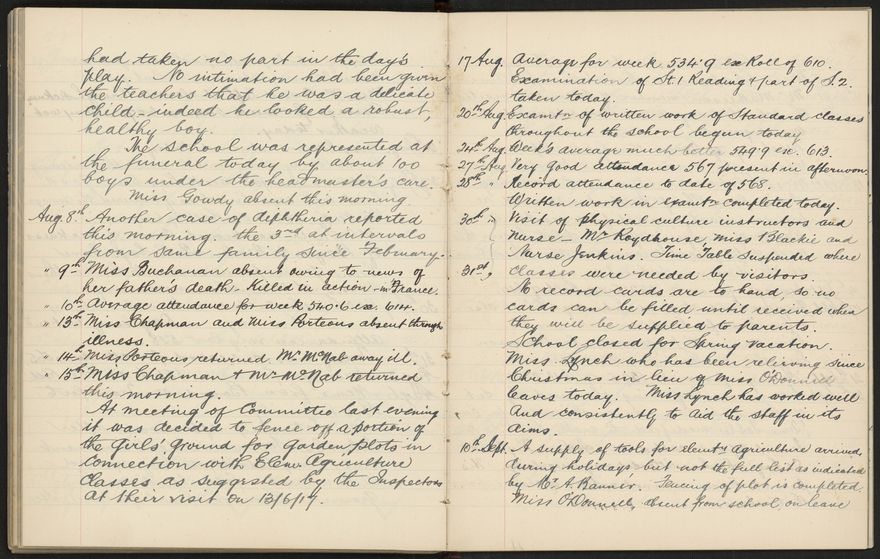 had taken no part in the day's
play. No intimation had been given
the teachers that he was a delicate
child - indeed he looked a robust,
healthy boy.
The school was represented at
the funeral today by about 100
boys under the headmaster's care.
Miss Gowdy absent this morning
Aug 8th Another case of diphtheria reported
this morning. the 3rd at intervals
from same family since February.
" 9th Miss Buchanan absent owing to news of
her father's death - Killed in action - in France.
" 10th Average attendance for week 540.6 ex. 614.
" 13th Miss Chapman and Miss Porteous absent through
illness.
" 14th Miss Porteous returned. Mr McNab away ill.
" 15th Miss Chapman & Mr McNab returned
this morning.
At meeting of Committee last evening
it was decided to fence off a portion of
the Girls' Ground for Garden plots in
connection with Elem. Agriculture
Classes as suggested by the Inspectors
at their visit on 13/6/17.
17 Aug. Average for week 534.9 ex Roll of 610.
Examination of St. 1 Reading & part of S.2.
taken today.
20th Aug. Examtn of written work of Standard classes
throughout the school begun today
24th Aug. Week's average much better 549.9 ex. 613.
27th Aug Very good attendance 567 present in afternoon.
28th " Record attendance to date of 568.
Written work in examtn completed today.
30th " Visit of physical culture instructors and
nurse - Mr Roydhouse, Miss Blackie and
Nurse Jenkins. Time Table suspended where
31st " classes were needed by visitors.
No record cards are to hand, so no
cards can be filled until received when
they will be supplied to parents.
School closed for Spring Vacation.
Miss Lynch who has been relieving since
Christmas in lieu of Miss O'Donnell
leaves today. Miss Lynch has worked well
and consistently to aid the staff in its
aims.
10th Sept. A supply of tools for elemty agriculture arrived
during holidays, but not the full list as indicated
by Mr A. Bannir. Fencing of plot is completed.
Miss O'Donnell, absent from school, on leave